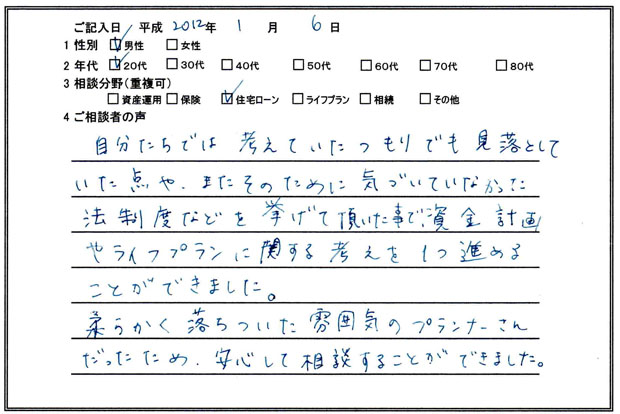 ご記入日 平成 2012年 1月 6日
1 性別 ☑男性 □女性
2 年代 ☑20代 □30代 □40代 □50代 □60代 □70代 □80代
3 相談分野(重複可)
□資産運用 □保険 ☑住宅ローン □ライフプラン □相続 □その他
4 ご相談者の声
自分たちでは考えていたつもりでも見落として
いた点や、またそのために気づいていなかった
法制度などを挙げて頂いた事で、資金計画
やライフプランに関する考えを1つ進める
ことができました。
柔らかく落ちついた雰囲気のプランナーさん
だったため、安心して相談することができました。